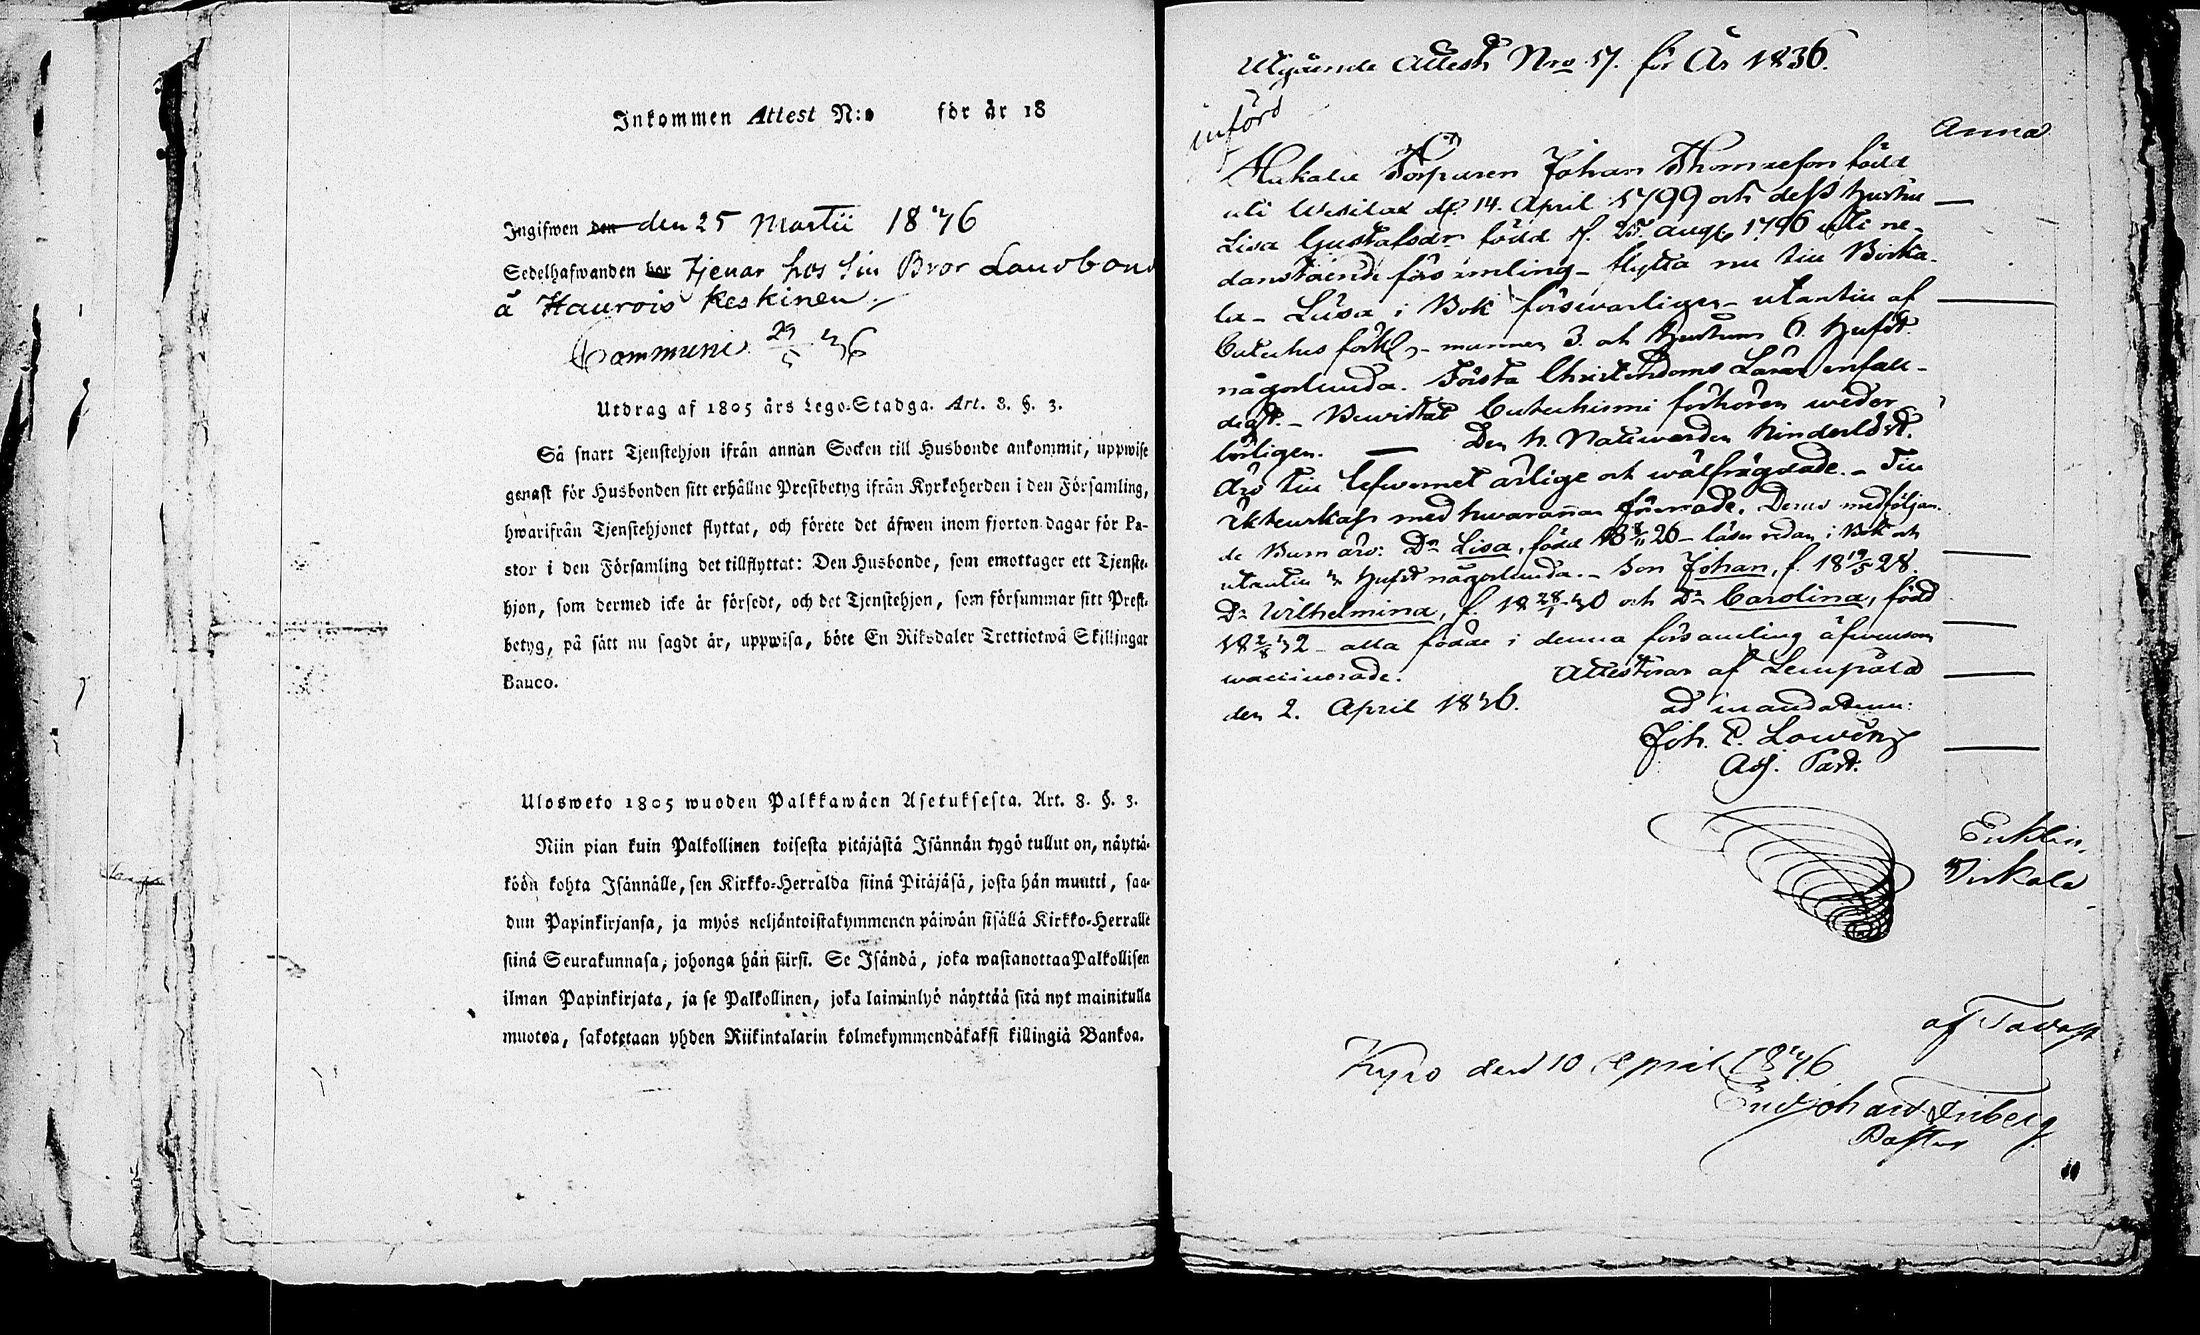 Inkommen Attest N:o för år 18
Ingifwen den den 25 Martii 1836
Sedelhafwanden bor Tjenar hos sin Bror Landbond
å Haurois Keskinen
Communic. 29/5 36
Utdrag af 1805 års Lego-Stadga. Art. 8. §. 3.
Så snart Tjenstehjon ifrån annan Socken till Husbonde ankommit, uppwise
genast för Husbonden sitt erhållne Prestbetyg ifrån Kyrkoherden i den Församling,
hwarifrån Tjenstehjonet flyttat, och förete det äfwen inom fjorton dagar för Pa-
stor i den Församling det tillflyttat: Den Husbonde, som emottager ett Tjenste-
hjon, som dermed icke är försedt, och det Tjenstehjon, som försummar sitt Prest-
betyg, på sätt nu sagdt är, uppwisa, böte En Riksdaler Trettiotwå Skillingar
Banco.
Ulosweto 1805 wuoden Palkkawäen Asetuksesta. Art. 8. §. 3.
Niin pian kuin Palkollinen toisesta pitäjästä Isännän tygö tullut on, näyttä-
köön kohta Isännälle, sen Kirkko-Herralda siinä Pitäjäsä, josta hän muutti, saa-
dun Papinkirjansa, ja myös neljäntoistakymmenen päiwän sisällä Kirkko-Herralle
siinä Seurakunnasa, johonga hän siirsi. Se Isändä, joka wastanottaa Palkollisen
ilman Papinkirjata, ja se Palkollinen, joka laiminlyö näyttää sitä nyt mainitulla
muotoa, sakotetaan yhden Riikintalarin kolmekymmendäkaksi killingiä Bankoa.
Utgående Attest Nro 57. för År 1836.
införd
Torparen Johan Thomasson född
uti Wesilax d. 14. April 1799 och dess hustru
Lisa Gustafsdr född d. 25. aug. 1796 uti ne-
danstående församling - flytta nu till Birka-
la - Läsa i Bok försvarligen - utantill af
Catechis förkl. - mannen 3. och hustrun 6. Hufst
någorlunda. Första Christendoms Läran enfall-
digt. - Bewistat Catechismi förhören weder-
börligen. — Den h. Nattwarden hinderlöst.
Äro till lefwernet ärlige och wälfrägdade. - Till
äktenskap med hwarannan förenade. Deras medföljan-
de Barn äro: Dr Lisa, född 18 8/11 26 - läser redan i Bok och
utantill 2 Hufst någorlunda. - Son Johan, f. 18 19/5 28.
Dr Wilhelmina, f. 18 28/1 30 och Dr Carolina, född
18 2/8 32 - alla födde i denna församling äfwensom
waccinerade. Attesterar af Lempälä
den 2. April 1836. ad mandatum:
Joh. E. Lowén
Adj. Past.
Anna
Birkala
af Tavast
Kyro den 10 April 1836
Past